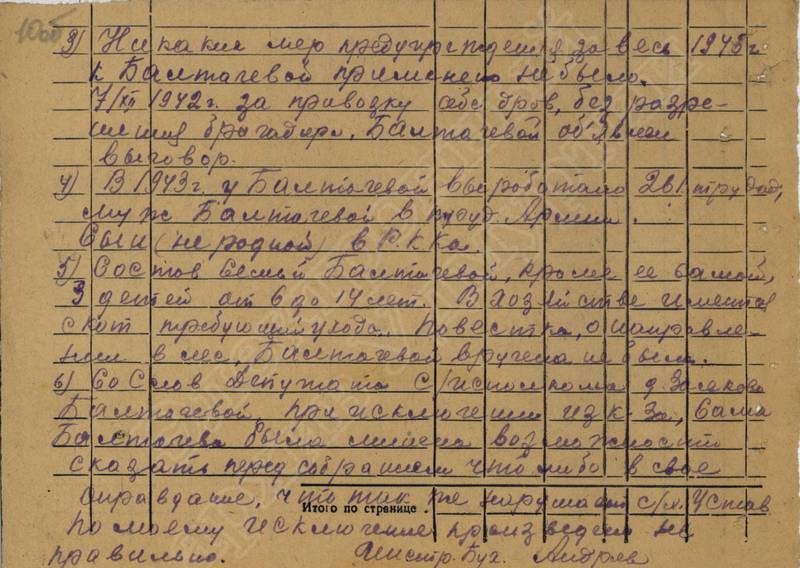 10об
3) Никаких мер предупреждения за весь 1943 г.
к Балтачевой применено не было.
7/XII 1942 г. за привозку себе дров, без разре-
шения бригадира, Балтачевой об'явлен
выговор.
4) В 1943 г. у Балтачевой выработано 261 трудод,
муж Балтачевой в труд. Армии.
Сын (не родной) в РККа.
5) Состов семьи Балтачевой, кроме ее самой,
3 детей от 6 до 14 лет. В хозяйстве имеется
скот требующий ухода. Повестка, о направле-
нии в лес, Балтачевой вручена не была.
6) Со слов Депутата С/исполкома д.
Балтачевой, при исключении из к-за, сама
Балтачева была лишена возможности
сказать перед собранием что либо в свое
оправдание, что так же нарушает с/х. Устав
Итого по странице
По моему исключение произведено не
правильно. Инстр. Бух. Андреев